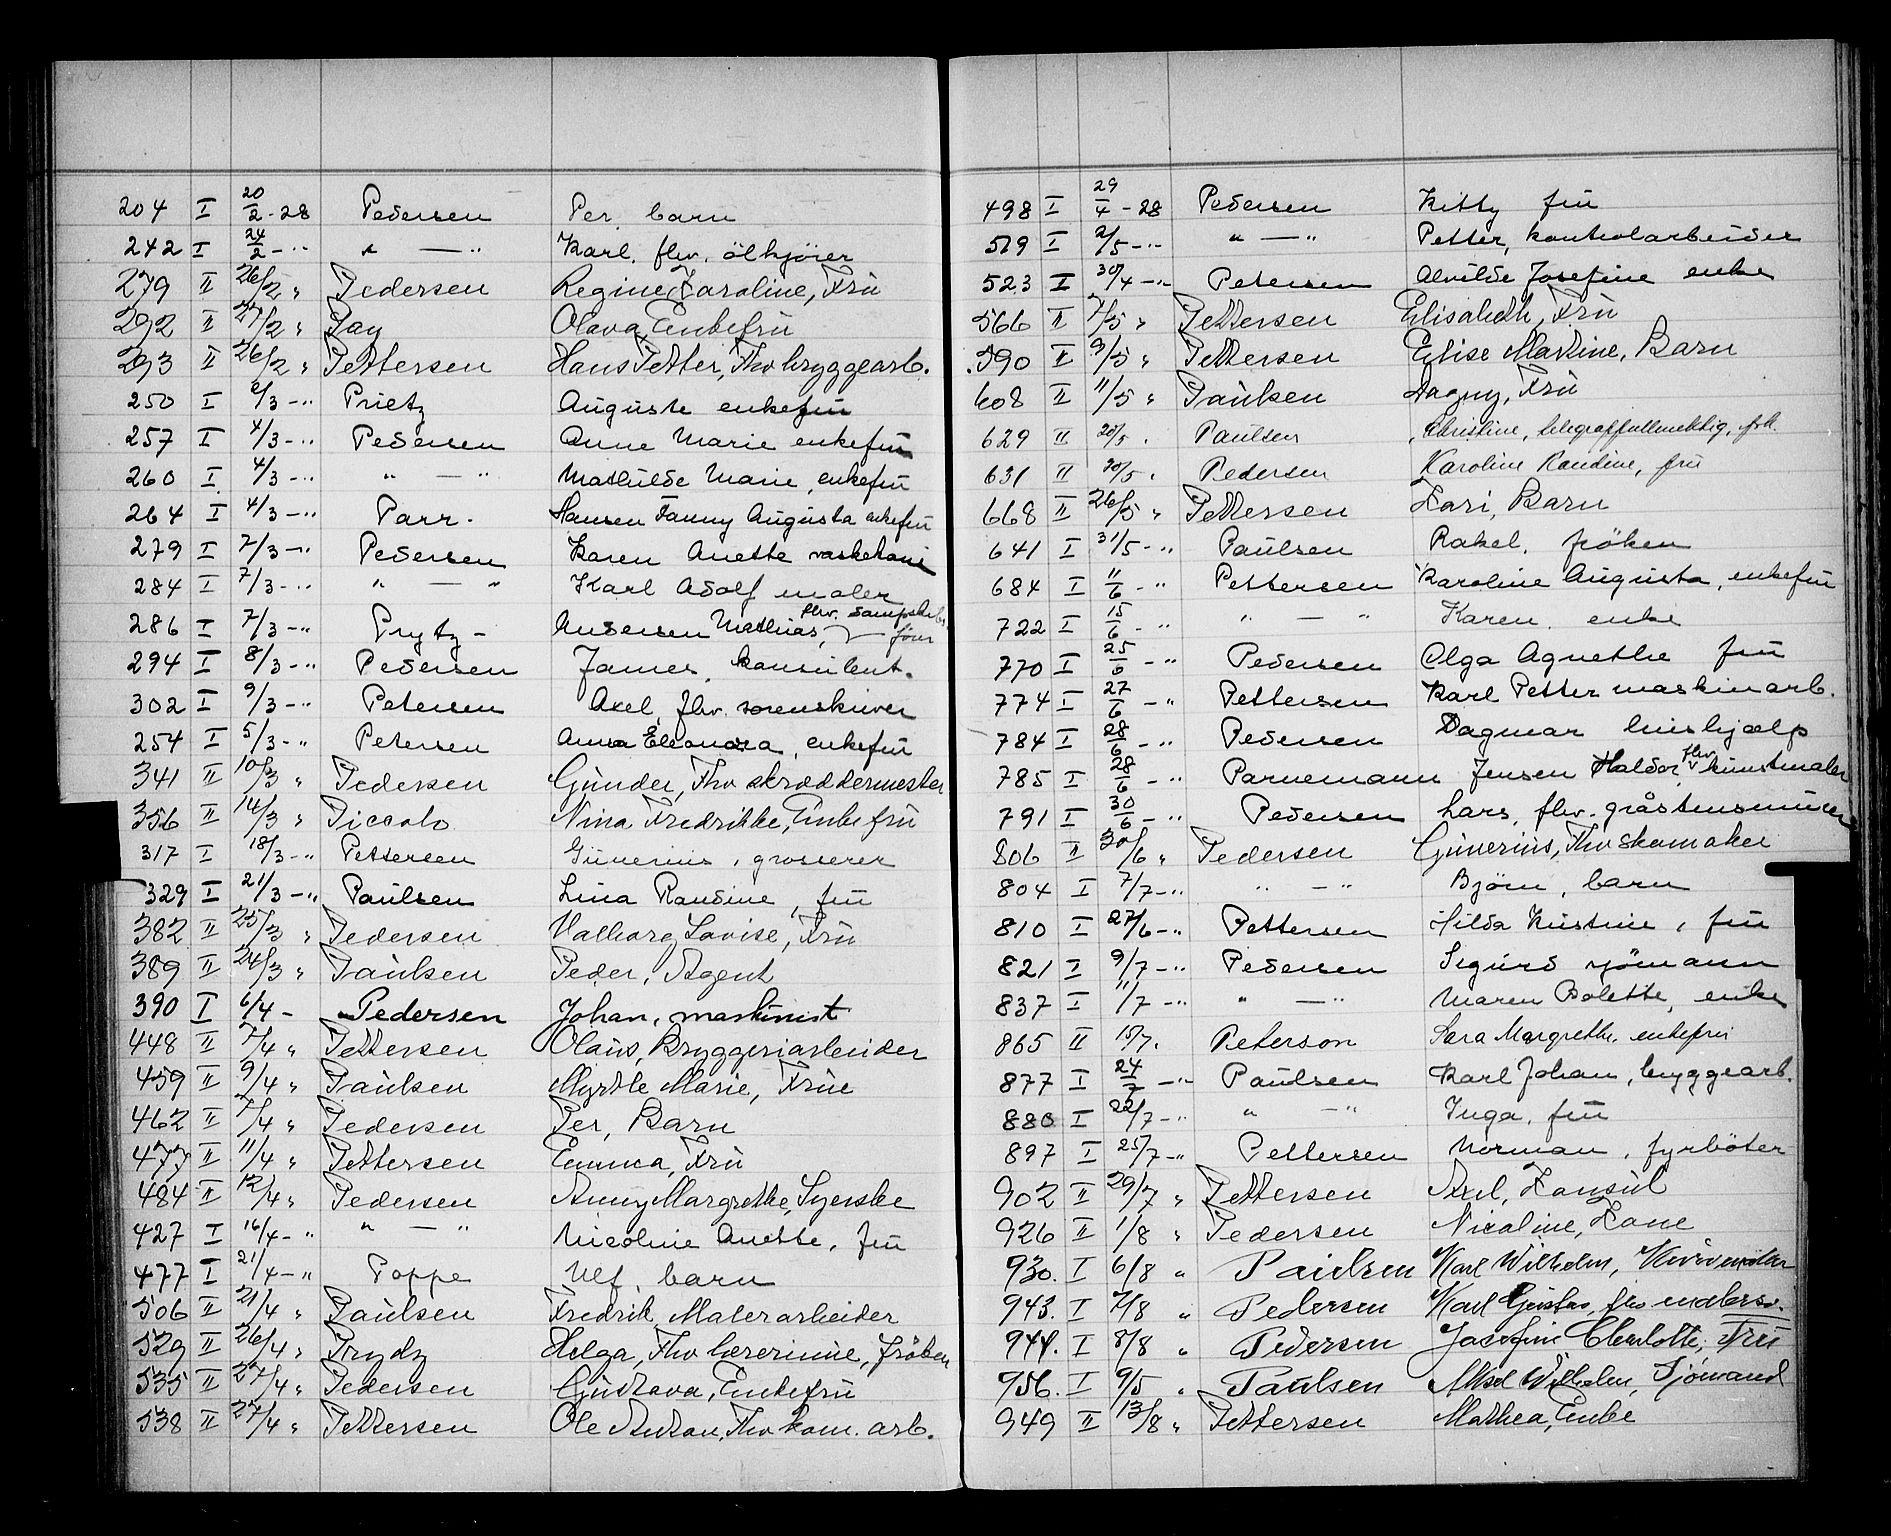 204 I 20/2-28 Pedersen Per, barn
242 I 24/2-" " — " Karl, fhv. ölkjörer
279 II 26/2 " Pedersen Regine Karoline, Fru
292 II 27/2 " Pay Olava, Enkefru
293 II 26/2 " Pettersen Hans Petter, Fhv bryggearb.
250 I 2/3-" Prietz Auguste enkefru
257 I 4/3-" Pedersen Anne Marie enkefru
260 I 4/3-" " — " Mathilde Marie, enkefru
264 I 4/3-" Parr. Hansen Fanny Augusta enkefru
279 I 7/3-" Pedersen Karen Anette vaskekone
284 I 7/3-" " — " Karl Adolf maler
286 I 7/3-" Prytz - Andersen Mathias, fhv. dampskibsförer
294 I 8/3-" Pedersen James, konsulent.
302 I 9/3-" Petersen Axel, fhv. sorenskriver
254 I 5/3-" Petersen Anna Eleonora, enkefru
341 II 10/3 " Pedersen Gunder, Fhv skræddermester
356 II 14/3 " Piccolo Nina Fredrikke, Enkefru
317 I 18/3-" Pettersen Gunerius, grosserer
329 I 21/3-" Paulsen Lina Randine, fru
382 II 25/3 " Pedersen Valborg Lovise, Fru
389 II 24/3 " Paulsen Peder, Agent
390 I 6/4- Pedersen Johan, maskinist
448 II 7/4 " Pettersen Olaus, Bryggeriarbeider
459 II 9/4 " Paulsen Myrtle Marie, Frue
462 II 7/4 " Pedersen Per, Barn
477 II 11/4 " Pettersen Emma, Fru
484 II 12/4 " Pedersen Anny Margrethe, Syerske
427 I 16/4-" " — " Nicoline Anette, fru
477 I 21/4-" Poppe Ulf, barn
506 II 21/4 " Paulsen Fredrik, Malerarbeider
529 II 26/4 " Prydz Helga, Fhv lærerinne, Fröken
535 II 27/4 " Pedersen Gustava, Enkefru
538 II 27/4 " Pettersen Ole Anton, Fhv kom. arb.
498 I 29/4-28 Pedersen Kitty fru
519 I 2/5-" " — " Petter, kontrolarbeider
523 I 30/4-" Petersen Alvilde Josefine enke
566 II 7/5 " Pettersen Elisabeth, Fru
590 II 9/5 " Pettersen Elise Martine, Barn
608 II 11/5 " Paulsen Dagny, Fru
629 II 20/5 " Paulsen Christine, telegraffullmektig, frk.
631 II 20/5 " Pedersen Karoline Randine, fru
668 II 26/5 " Pettersen Kari, Barn
641 I 31/5-" Paulsen Rakel, fröken
684 I 11/6-" Pettersen Karoline Augusta, enkefru
722 I 15/6-" " — " Karen, enke
770 I 25/6-" Pedersen Olga Agnethe fru
774 I 27/6-" Pettersen Karl Petter maskinarb.
784 I 28/6-" Pedersen Dagmar hushjælp
785 I 28/6-" Parnemann Jensen Haldor, fhv. kunstmaler
791 I 30/6-" Pedersen Lars, fhv. gråstensmurer
806 II 30/6 " Pedersen Gunerius, Fhv skomaker
804 I 7/7-" " — " Björn, barn
810 I 27/6-" Pettersen Hilda Kristine, fru
821 I 9/7-" Pedersen Sigurd sjömann
837 I 11/7-" " — " Maren Bolette, enke
865 II 15/7. Peterson Sara Margrethe, enkefru
877 I 24/7-" Paulsen Karl Johan, bryggearb.
880 I 22/7-" " — " Inga, fru
897 I 25/7-" Pettersen Norman, fyrböter
902 II 29/7 " Pettersen Axel, Konsul
926 II 1/8 " Pedersen Nicoline, Kone
930. I 6/8 " Paulsen Karl Wilhelm,
943. I 7/8 " Pedersen Karl Gustav, fhv
944. I 8/8 " Pedersen Josefine Charlotte, Fru
956. I 9/5 " Paulsen Aksel Wilhelm, Sjömand
949 II 13/8 " Pettersen Mathea, Enke